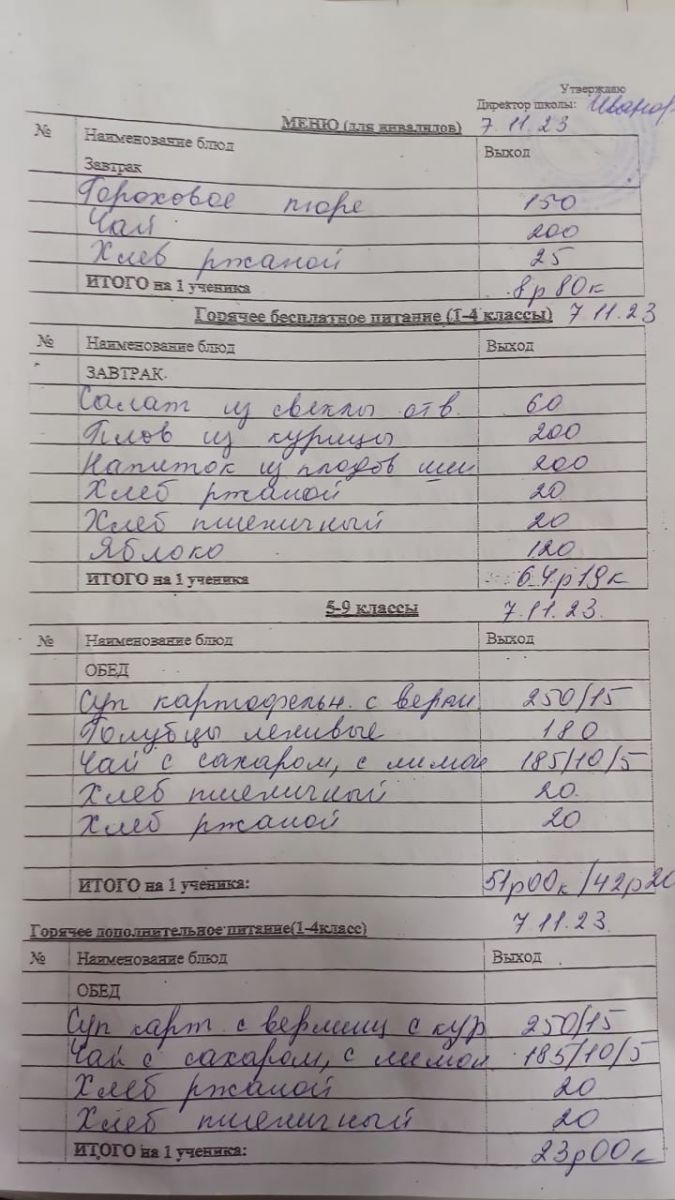 Утверждаю
Директор школы: Иванов
МЕНЮ (для инвалидов) 7.11.23
№ Наименование блюд Выход
Завтрак
Гороховое пюре 150
Чай 200
Хлеб ржаной 25
ИТОГО на 1 ученика 8р 80к
Горячее бесплатное питание (1-4 классы) 7.11.23
№ Наименование блюд Выход
ЗАВТРАК
Салат из свеклы отв. 60
Плов из курицы 200
Напиток из плодов 200
Хлеб ржаной 20
Хлеб пшеничный 20
Яблоко 120
ИТОГО на 1 ученика 64р19к
5-9 классы 7.11.23.
№ Наименование блюд Выход
ОБЕД
Суп картофельн. с верми 250/15
Голубцы ленивые 180
Чай с сахаром, с лимон 185/10/5
Хлеб пшеничный 20
Хлеб ржаной 20
ИТОГО на 1 ученика: 51р00к/42р20
Горячее дополнительное питание(1-4класс) 7.11.23.
№ Наименование блюд Выход
ОБЕД
Суп карт с вермиш с кур 250/15
Чай с сахаром, с лимон 185/10/5
Хлеб ржаной 20
Хлеб пшеничный 20
ИТОГО на 1 ученика: 23р00к